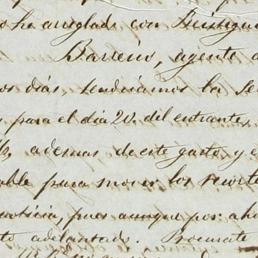 o ha arreglado con
Barreiro, agente d
os dias, tendriamos la se
para el dia 20. del entrante,
ademas de este gasto y e
ble para mover los resorte
usticia, pues aunque por aho
to adelantado. Procurate